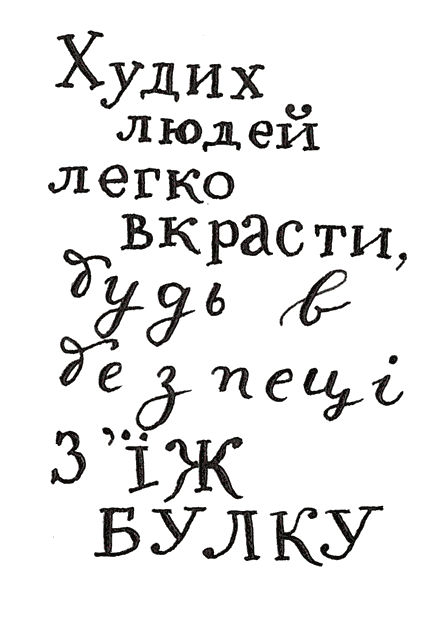 Худих
людей
легко
вкрасти,
будь в
безпеці
З'їЖ
БУЛКУ